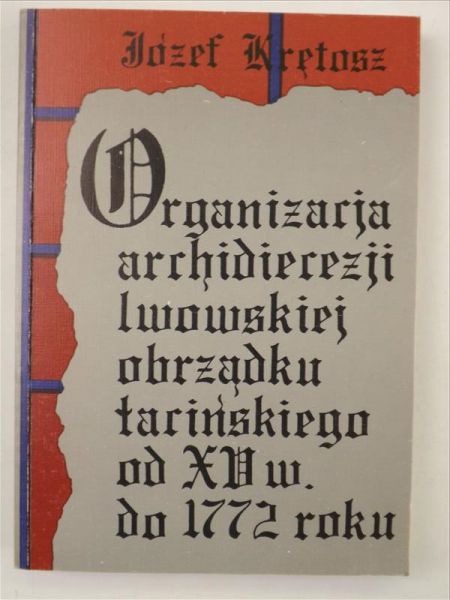 Józef Krętosz
Organizacja
archidiecezji
lwowskiej
obrządku
łacińskiego
od XV w.
do 1772 roku